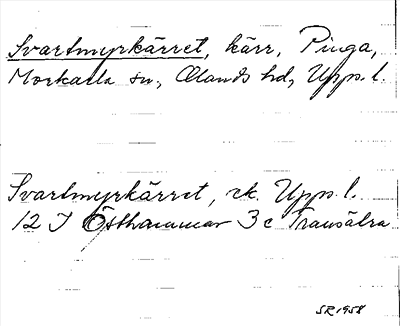 Svartmyrkärret, kärr, Pinga,
Morkarla sn, Olands hd, Upps. l.
Svartmyrkärret, ek. Upps. l.
12 I Östhammar 3 c Transätra
SR 1958